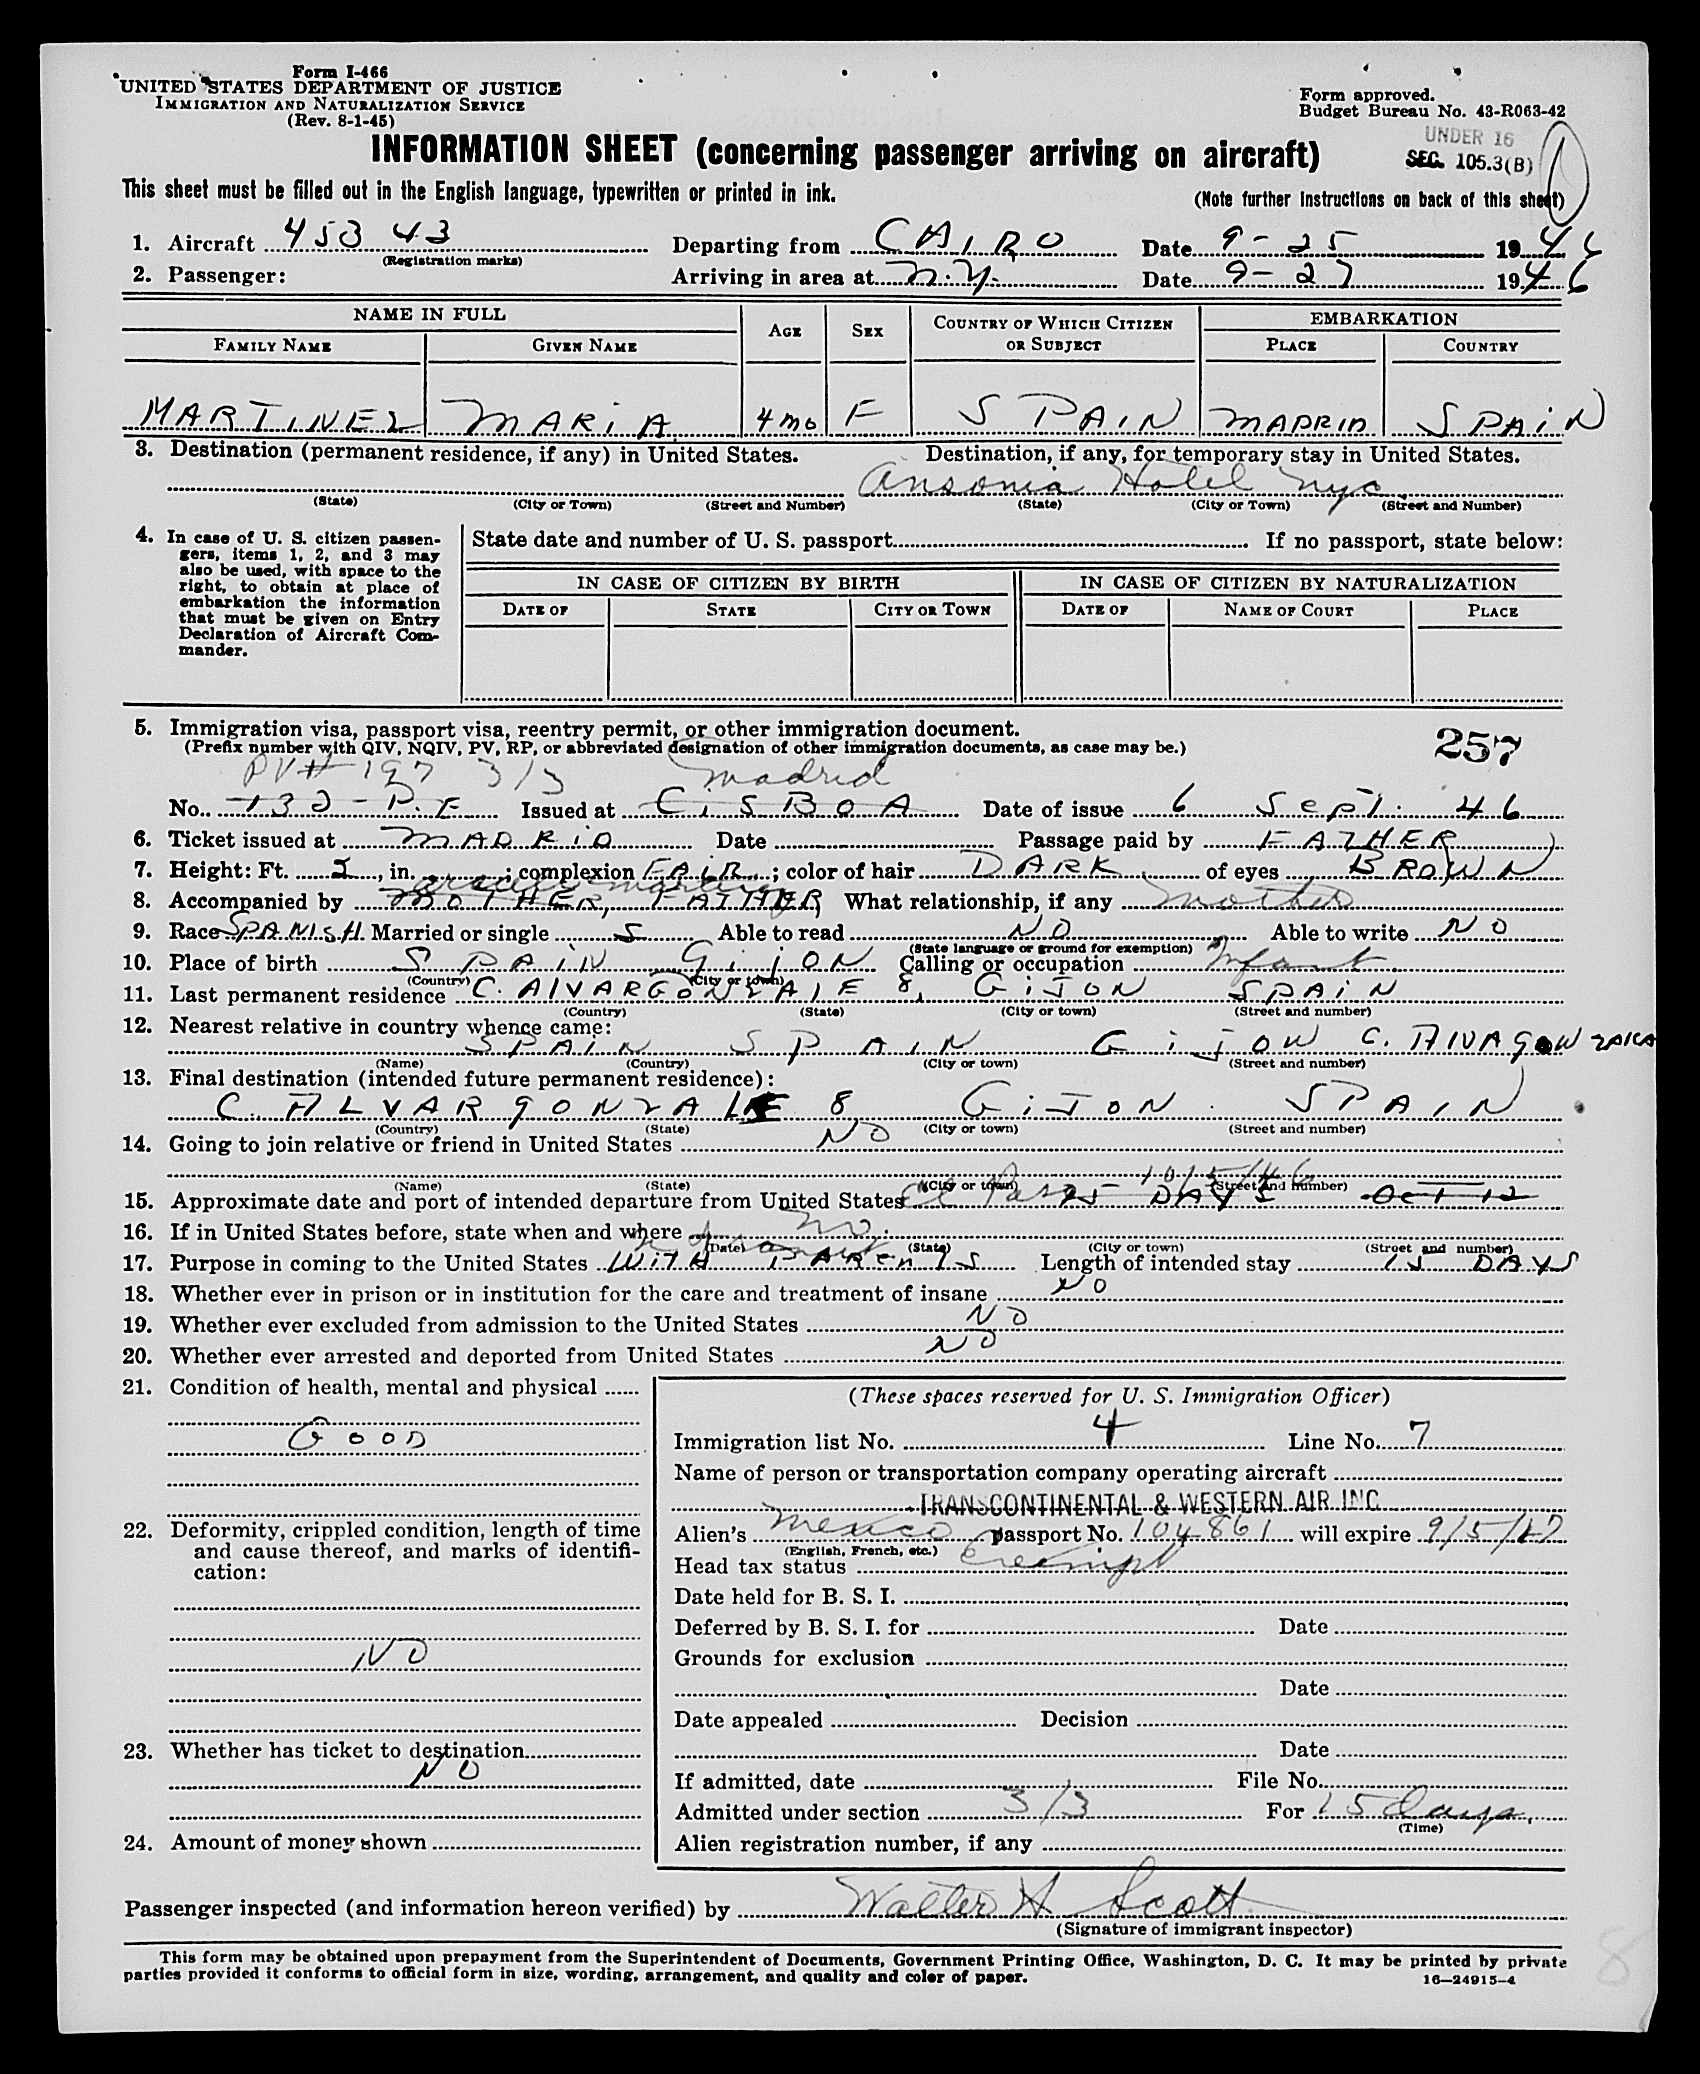 Form I-466
UNITED STATES DEPARTMENT OF JUSTICE
IMMIGRATION AND NATURALIZATION SERVICE
(Rev. 8-1-45)
Form approved.
Budget Bureau No. 43-R063-42
UNDER 16
SEC. 105.3(B)
INFORMATION SHEET (concerning passenger arriving on aircraft)
This sheet must be filled out in the English language, typewritten or printed in ink.
(Note further instructions on back of this sheet)
1. Aircraft 453 43 Departing from CAIRO Date 9-25 1946
(Registration marks)
2. Passenger: Arriving in area at N.Y. Date 9-27 1946
NAME IN FULL AGE SEX COUNTRY OF WHICH CITIZEN OR SUBJECT EMBARKATION
FAMILY NAME GIVEN NAME PLACE COUNTRY
MARTINEZ MARIA 4 mo F SPAIN MADRID SPAIN
3. Destination (permanent residence, if any) in United States. Destination, if any, for temporary stay in United States.
Ansonia Hotel nyc
(State) (City or Town) (Street and Number) (State) (City or Town) (Street and Number)
4. In case of U. S. citizen passengers, items 1, 2, and 3 may also be used, with space to the right, to obtain at place of embarkation the information that must be given on Entry Declaration of Aircraft Commander.
State date and number of U. S. passport If no passport, state below:
IN CASE OF CITIZEN BY BIRTH IN CASE OF CITIZEN BY NATURALIZATION
DATE OF STATE CITY OR TOWN DATE OF NAME OF COURT PLACE
5. Immigration visa, passport visa, reentry permit, or other immigration document.
(Prefix number with QIV, NQIV, PV, RP, or abbreviated designation of other immigration documents, as case may be.)
257
PV# 197 3/3 Madrid
No. 132-P.E Issued at LISBOA Date of issue 6 Sept. 46
6. Ticket issued at MADRID Date Passage paid by FATHER
7. Height: Ft. 2, in. ; complexion FAIR; color of hair DARK of eyes BROWN
8. Accompanied by MOTHER, FATHER What relationship, if any Mother
9. Race SPANISH Married or single S Able to read NO Able to write NO
(State language or ground for exemption)
10. Place of birth SPAIN GIJON Calling or occupation Infant
(Country) (City or town)
11. Last permanent residence C. AlVARGONZAlE 8, GIJON SPAIN
(Country) (State) (City or town) (Street and number)
12. Nearest relative in country whence came:
SPAIN SPAIN GIJON C.
(Name) (Country) (City or town) (Street and number)
13. Final destination (intended future permanent residence):
C. ALVARGONZALE 8 GIJON. SPAIN
(Country) (State) (City or town) (Street and number)
14. Going to join relative or friend in United States NO
(Name) (State) (City or town) (Street and number)
El Paso 10/5/46
15. Approximate date and port of intended departure from United States 15 DAYS OCT 12
16. If in United States before, state when and where no.
(Date) (State) (City or town) (Street and number)
17. Purpose in coming to the United States WITH PARENTS Length of intended stay 15 DAYS
18. Whether ever in prison or in institution for the care and treatment of insane NO
19. Whether ever excluded from admission to the United States NO
20. Whether ever arrested and deported from United States NO
21. Condition of health, mental and physical
GOOD
22. Deformity, crippled condition, length of time and cause thereof, and marks of identification:
NO
23. Whether has ticket to destination
NO
24. Amount of money shown
(These spaces reserved for U. S. Immigration Officer)
Immigration list No. 4 Line No. 7
Name of person or transportation company operating aircraft
TRANSCONTINENTAL & WESTERN AIR INC
Alien's Mexico passport No. 104861 will expire 9/5/47
(English, French, etc.)
Head tax status Exempt
Date held for B. S. I.
Deferred by B. S. I. for Date
Grounds for exclusion
Date
Date appealed Decision
Date
If admitted, date File No.
Admitted under section 3/3 For 15 days.
(Time)
Alien registration number, if any
Passenger inspected (and information hereon verified) by Walter H Scott
(Signature of immigrant inspector)
This form may be obtained upon prepayment from the Superintendent of Documents, Government Printing Office, Washington, D. C. It may be printed by private
parties provided it conforms to official form in size, wording, arrangement, and quality and color of paper.
16—24915-4
8